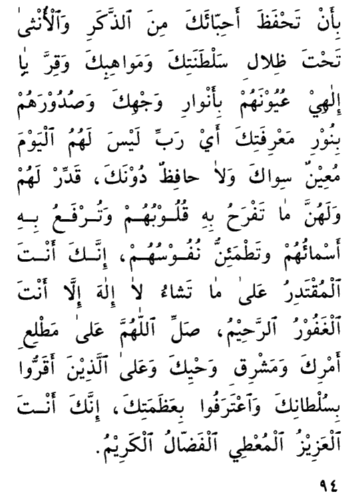 بِأَنْ تَحْفَظَ أَحِبَّائَكَ مِنَ ٱلذَّكَرِ وَٱلْأُنْثىٰ
تَحْتَ ظِلالِ سَلْطَنَتِكَ وَمَواهِبِكَ وَقِرَّ يٰا
إِلٰهِيْ عُيُوْنَهُمْ بِأَنْوارِ وَجْهِكَ وَصُدُوْرَهُمْ
بِنُوْرِ مَعْرِفَتِكَ أَيْ رَبِّ لَيْسَ لَهُمُ ٱلْيَوْمَ
مُعِيْنٌ سِواكَ وَلاٰ حافِظٌ دُوْنَكَ، قَدِّرْ لَهُمْ
وَلَهُنَّ مٰا تَفْرَحُ بِهِ قُلُوْبُهُمْ وَتُرْفَعُ بِهِ
أَسْمائُهُمْ وَتَطْمَئِنُّ نُفُوْسُهُمْ، إِنَّكَ أَنْتَ
ٱلْمُقْتَدِرُ عَلىٰ مٰا تَشاءُ لاٰ إِلٰهَ إِلَّا أَنْتَ
ٱلْغَفُوْرُ ٱلرَّحِيْمُ، صَلِّ ٱللّٰهُمَّ عَلىٰ مَطْلِعِ
أَمْرِكَ وَمَشْرِقِ وَحْيِكَ وَعَلىٰ ٱلَّذِيْنَ أَقَرُّوا
بِسُلْطانِكَ وَٱعْتَرَفُوا بِعَظَمَتِكَ، إِنَّكَ أَنْتَ
ٱلْعَزِيْزُ ٱلْمُعْطِي ٱلْفَضّالُ ٱلْكَرِيْمُ.
٩٤